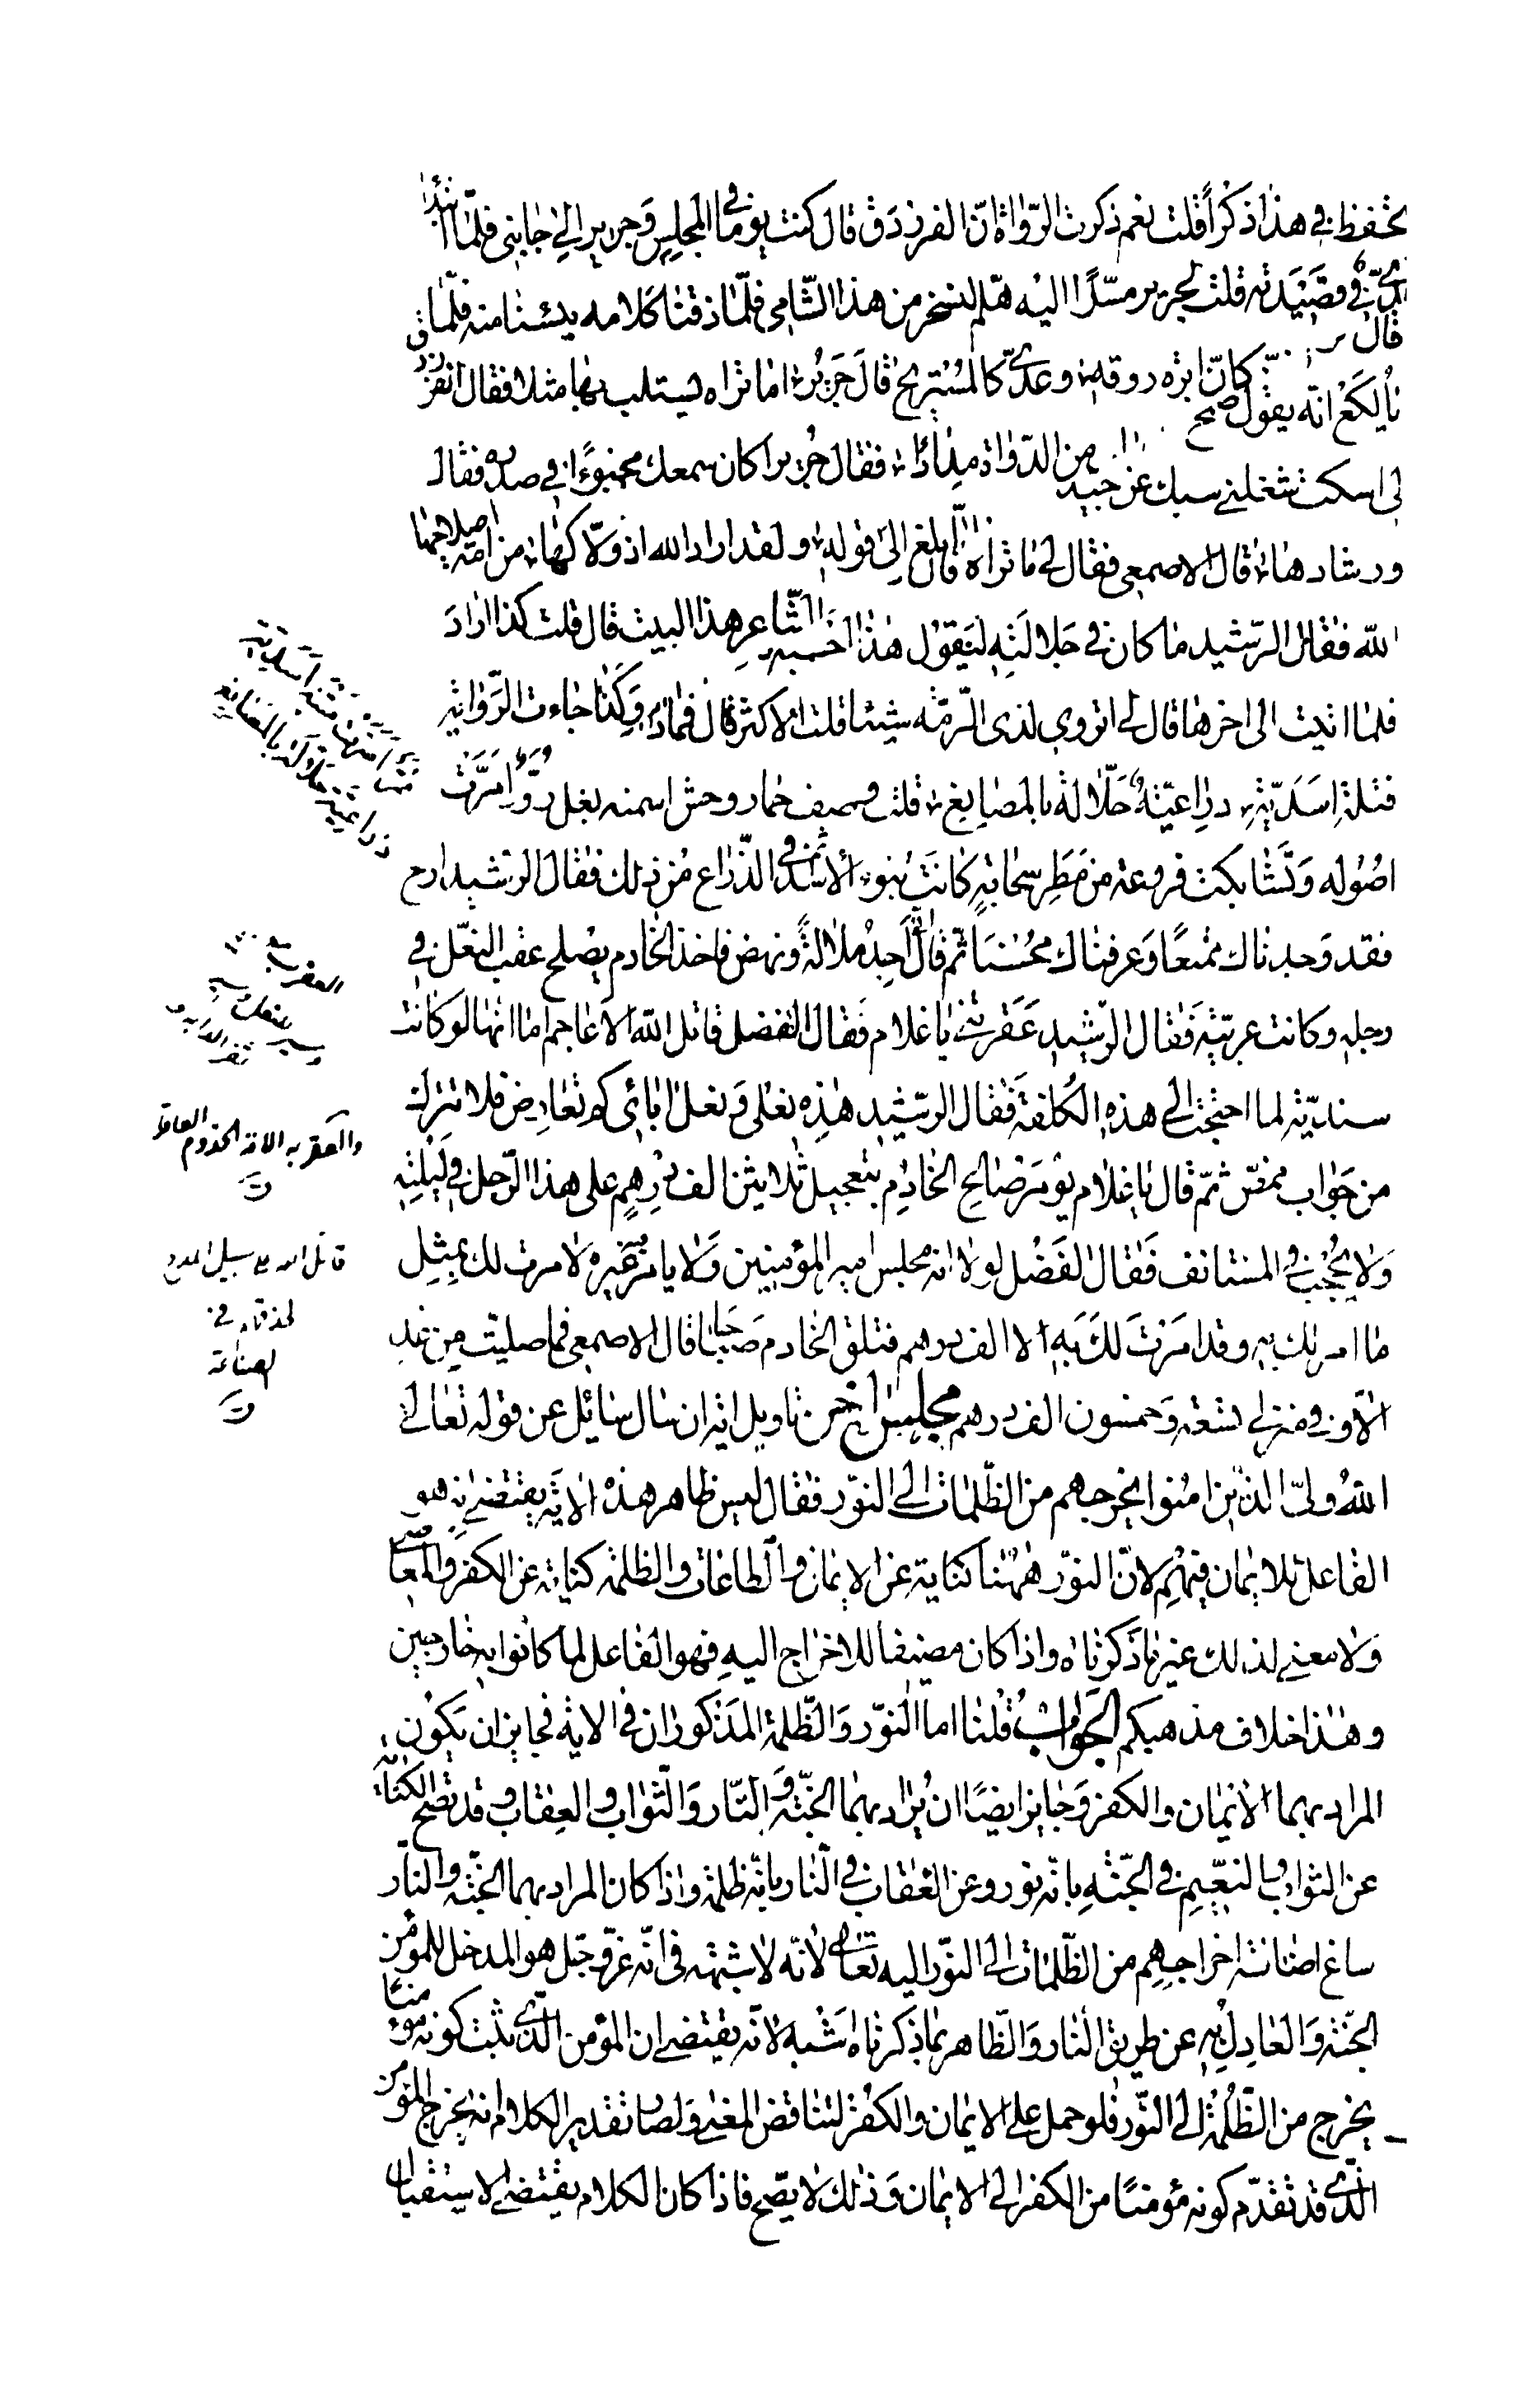 تحفظ في هذا ذكرا قلت نعم ذكرت الرواة ان الفرزدق قال كنت يوما في المجلس وجرير الى جانبي فلما ابتدا
عدي في قصيدته قلت لجرير مسرا اليه هلم نسخر من هذا الشامي فلما ذقنا كلامه يئسنا منه فلما
قال
كان ابرة روقه وعدي كالمستريح قال جرير اما تراه يستلب بها مثلا فقال الفرزدق
يا لكع انه يقول
من الدواة مدادها فقال جرير اكان سمعك مخبوءا في صدره فقال
لي اسكت شغلني سبك عن جيد
قال الاصمعي فقال لي ما تراه قال لما بلغ الى قوله ولقد اراد الله اذ ولاكها من امة اصلاحها
ورشادها
الله فقال الرشيد ما كان في جلالته ليقول هذا احسبه الشاعر هذا البيت قال قلت كذا اراد
فلما اتيت الى اخرها قال لي اتروي لذي الرمة شيئا قلت الاكثر قال فماذا وكذا جاءت الرواية
اسدية ذراعية حلالة بالمصانع قلت وصف حمار وحش اسمنه بقل
اصوله وتشابكت فروعه من مطر سحابة كانت بنوء الاسد ثم في الذراع من ذلك فقال الرشيد ارح
فقد وجدناك ممتعا وعرفناك محسنا ثم قال اجد ملالة ونهض فاخذ الخادم يصلح عقب النعل في
رجله وكانت عربية فقال الرشيد عقرتني يا غلام فقال الفضل قاتل الله الاعاجم اما انها لو كانت
سندية لما احتجت الى هذه الكلفة فقال الرشيد هذه نعلي ونعل ابائي كم تعارض فلا تترك
من جواب ممض ثم قال يا غلام يؤمر صالح الخادم بتعجيل ثلاثين الف درهم على هذا الرجل في ليلته
ولا يحجب في المستانف فقال الفضل لولا انه مجلس امير المؤمنين ولا يامر فيه غيره لامرت لك بمثل
ما امر لك به وقد امرت لك به الا الف درهم فتلق الخادم صباحا قال الاصمعي فما صليت من غد
الا وفي منزلي تسعة وخمسون الف درهم مجلس اخر تاويل اية ان سال سائل عن قوله تعالى
الله ولي الذين امنوا يخرجهم من الظلمات الى النور فقال ليس ظاهر هذه الاية يقتضي انه هو
الفاعل للايمان فيهم لان النور ههنا كناية عن الايمان والطاعات والظلمة كناية عن الكفر والمعاصي
ولا معنى لذلك غير ما ذكرناه واذا كان مضيفا للاخراج اليه فهو الفاعل لما كانوا به خارجين
وهذا خلاف مذهبكم الجواب قلنا اما النور والظلمة المذكوران في الاية فجايز ان يكون
المراد بهما الايمان والكفر وجايز ايضا ان يراد بهما الجنة والنار والثواب والعقاب وقد تصح الكناية
عن الثواب والنعيم في الجنة بانه نور وعن العقاب في النار بانه ظلمة واذا كان المراد بهما الجنة والنار
ساغ اضافة اخراجهم من الظلمات الى النور اليه تعالى لانه لا شبهة في انه عز وجل هو المدخل للمؤمن
الجنة والعادل به عن طريق النار والظاهر بما ذكرناه اشبه لانه يقتضي ان المؤمن الذي ثبت كونه مؤمنا
يخرج من الظلمة الى النور فلو حمل على الايمان والكفر لتناقض المعنى ولصار تقدير الكلام انه يخرج المؤمن
الذي قد تقدم كونه مؤمنا من الكفر الى الايمان وذلك لا يصح فاذا كان الكلام يقتضي الاستقبال
قاتل الله على سبيل المدح
لحذقهم في
الصناعة